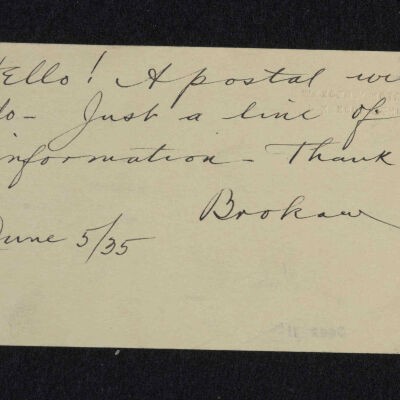 Hello! A postal wi
do - Just a line of
information - Thank
Brokaw
June 5/35